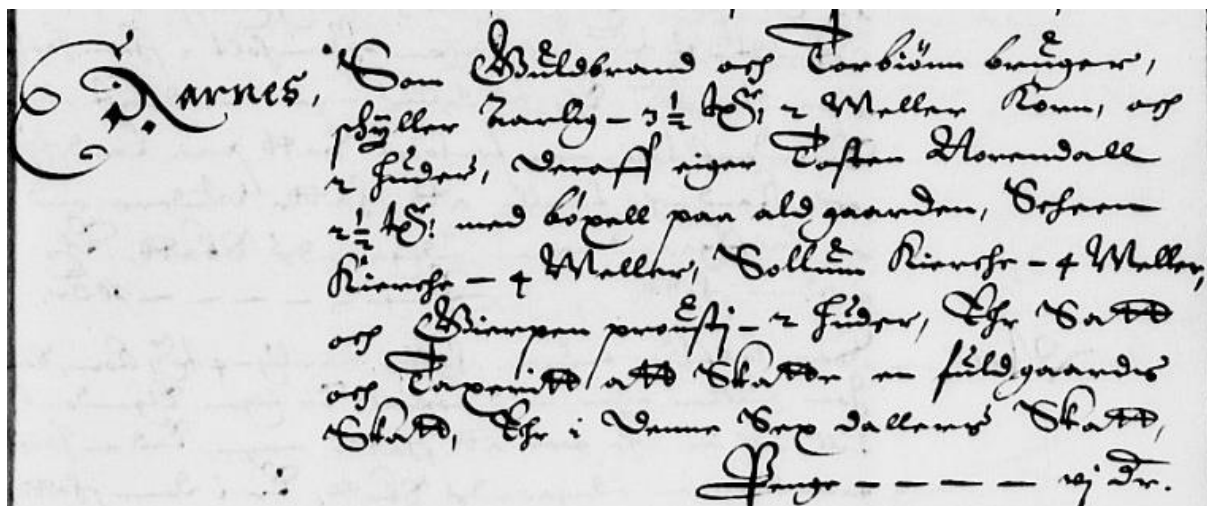 Aarnes, Som Guldbrand och Torbiønn bruger,
schÿller Aarlig - 3 ½ tdr; 2 Meller Korn, och
2 huder, Deraff eiger Tosten Norendall
2 ½ tdr: med bøxell paa ald gaarden, Scheen
Kierche - 4 Meller, Sollum Kierche - 4 Meller,
och Gierpen proustj - 2 huder, Ehr Satt
och Taxeritt att Skatte en fuldgaards
Skatt, Ehr i Denne Sex dallers Skatt,
Penge - - - - - vj dr.